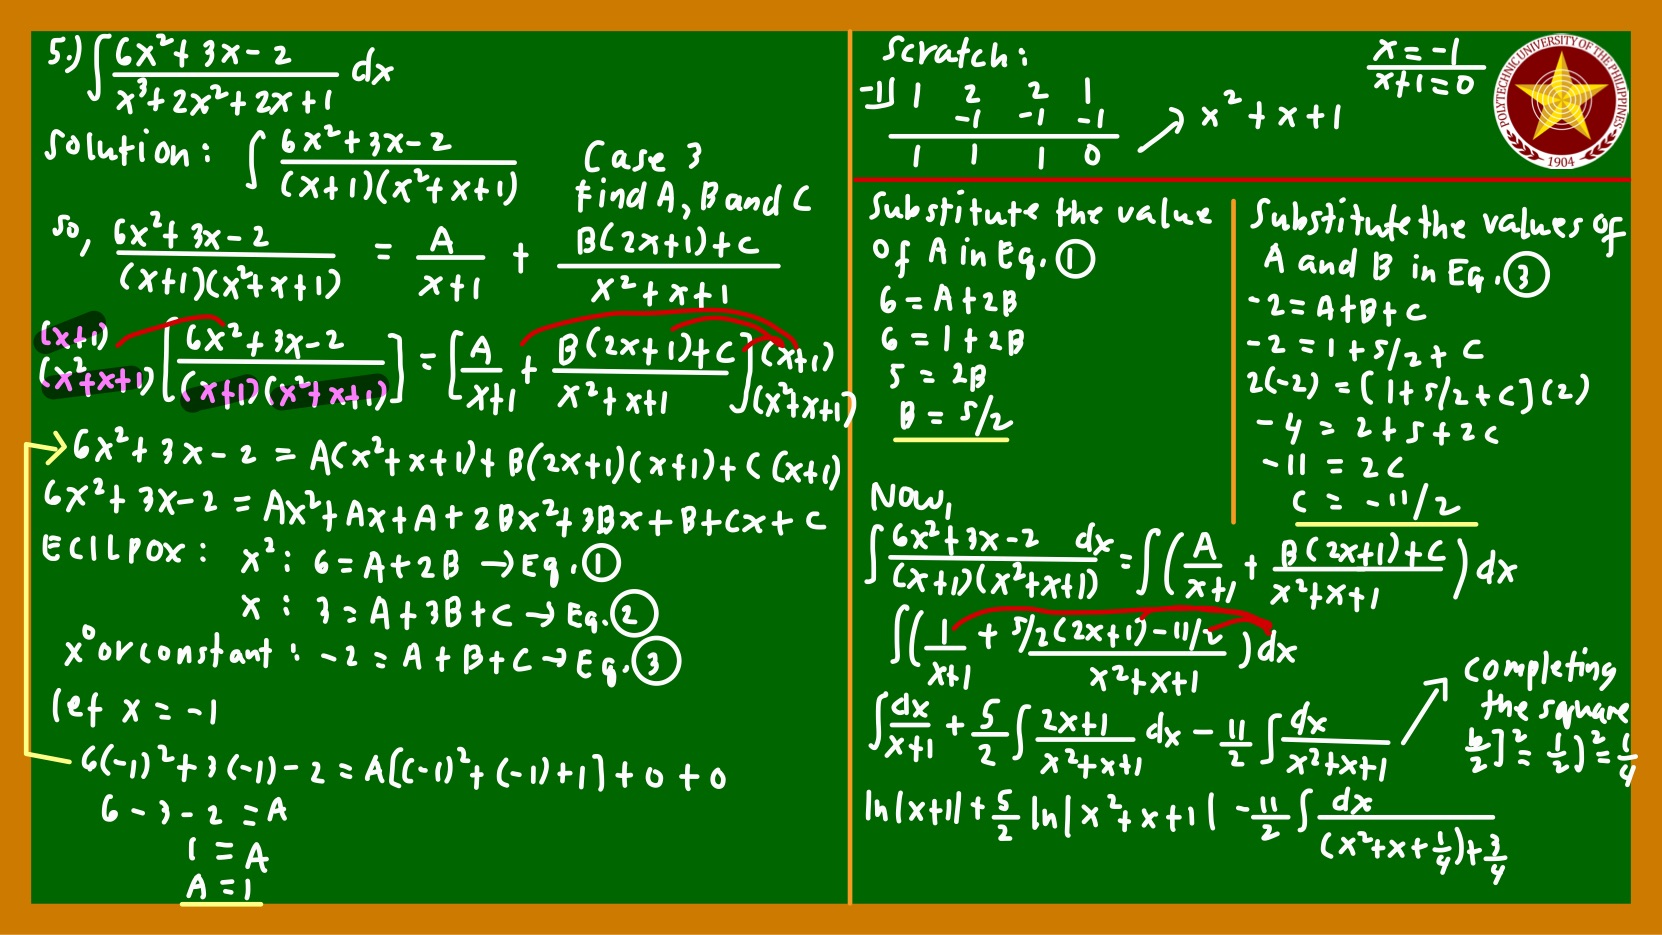 5.) ∫ (6x² + 3x - 2)/(x³ + 2x² + 2x + 1) dx
Solution: ∫ (6x² + 3x - 2)/((x+1)(x² + x + 1))
Case 3
find A, B and C
so, (6x² + 3x - 2)/((x+1)(x² + x + 1)) = A/(x+1) + (B(2x+1) + C)/(x² + x + 1)
(x+1)(x² + x + 1) [(6x² + 3x - 2)/((x+1)(x² + x + 1))] = [A/(x+1) + (B(2x+1) + C)/(x² + x + 1)] (x+1)(x² + x + 1)
6x² + 3x - 2 = A(x² + x + 1) + B(2x+1)(x+1) + C(x+1)
6x² + 3x - 2 = Ax² + Ax + A + 2Bx² + 3Bx + B + Cx + C
ECILPOX: x²: 6 = A + 2B → Eq. ①
x: 3 = A + 3B + C → Eq. ②
x⁰ or constant: -2 = A + B + C → Eq. ③
let x = -1
6(-1)² + 3(-1) - 2 = A[(-1)² + (-1) + 1] + 0 + 0
6 - 3 - 2 = A
1 = A
A = 1
Scratch:
-1| 1 2 2 1
-1 -1 -1
1 1 1 0 → x² + x + 1
x = -1
x+1 = 0
POLYTECHNIC UNIVERSITY OF THE PHILIPPINES
1904
Substitute the value
of A in Eq. ①
6 = A + 2B
6 = 1 + 2B
5 = 2B
B = 5/2
Substitute the values of
A and B in Eq. ③
-2 = A + B + C
-2 = 1 + 5/2 + C
2(-2) = [1 + 5/2 + C](2)
-4 = 2 + 5 + 2C
-11 = 2C
C = -11/2
Now,
∫ (6x² + 3x - 2 dx)/((x+1)(x² + x + 1)) = ∫ (A/(x+1) + (B(2x+1) + C)/(x² + x + 1)) dx
∫ (1/(x+1) + (5/2(2x+1) - 11/2)/(x² + x + 1)) dx
∫ dx/(x+1) + 5/2 ∫ (2x+1)/(x² + x + 1) dx - 11/2 ∫ dx/(x² + x + 1)
completing
the square
b/2]² = 1/2)² = 1/4
ln|x+1| + 5/2 ln|x² + x + 1| - 11/2 ∫ dx/((x² + x + 1/4) + 3/4)